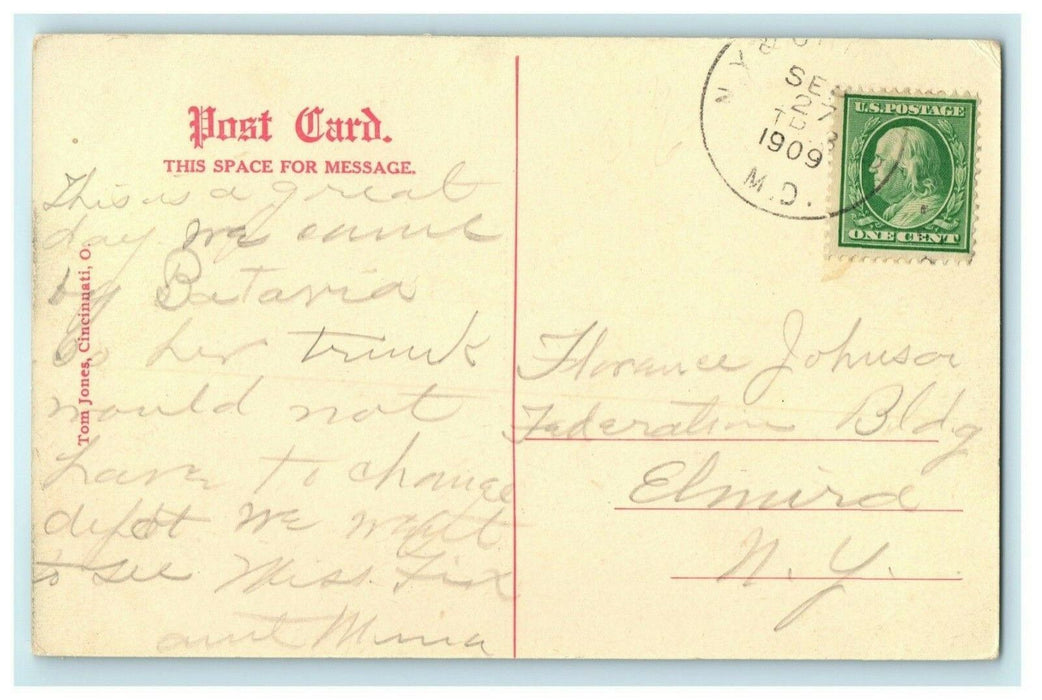 Post Card.
THIS SPACE FOR MESSAGE.
This is a great
day we came
by Batavia
So her trunk
would not
have to change
depot we want
to see Miss Fix
aunt Mina
Tom Jones, Cincinnati, O.
N.Y. &
SE
27
1909
M.D.
U.S. POSTAGE
ONE CENT
Florance Johnson
Federation Bldg
Elmira
N. Y.